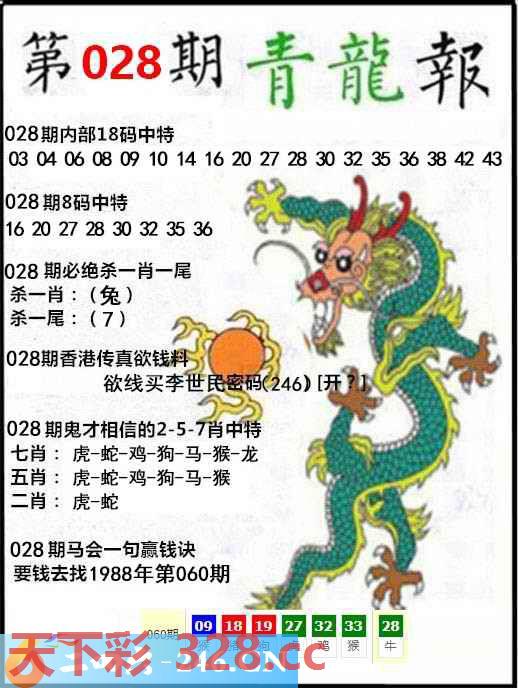 第028期青龍報
028期内部18码中特
03 04 06 08 09 10 14 16 20 27 28 30 32 35 36 38 42 43
028期8码中特
16 20 27 28 30 32 35 36
028 期必绝杀一肖一尾
杀一肖：（兔）
杀一尾：（7）
028期香港传真欲钱料
欲线买李世民密码(246) [开?]
028期鬼才相信的2-5-7肖中特
七肖： 虎-蛇-鸡-狗-马-猴-龙
五肖： 虎-蛇-鸡-狗-马-猴
二肖： 虎-蛇
028 期马会一句赢钱诀
要钱去找1988年第060期
060期 09 18 19 27 32 33 28
猴 猪 狗 虎 鸡 猴 牛
天下彩-328.cc